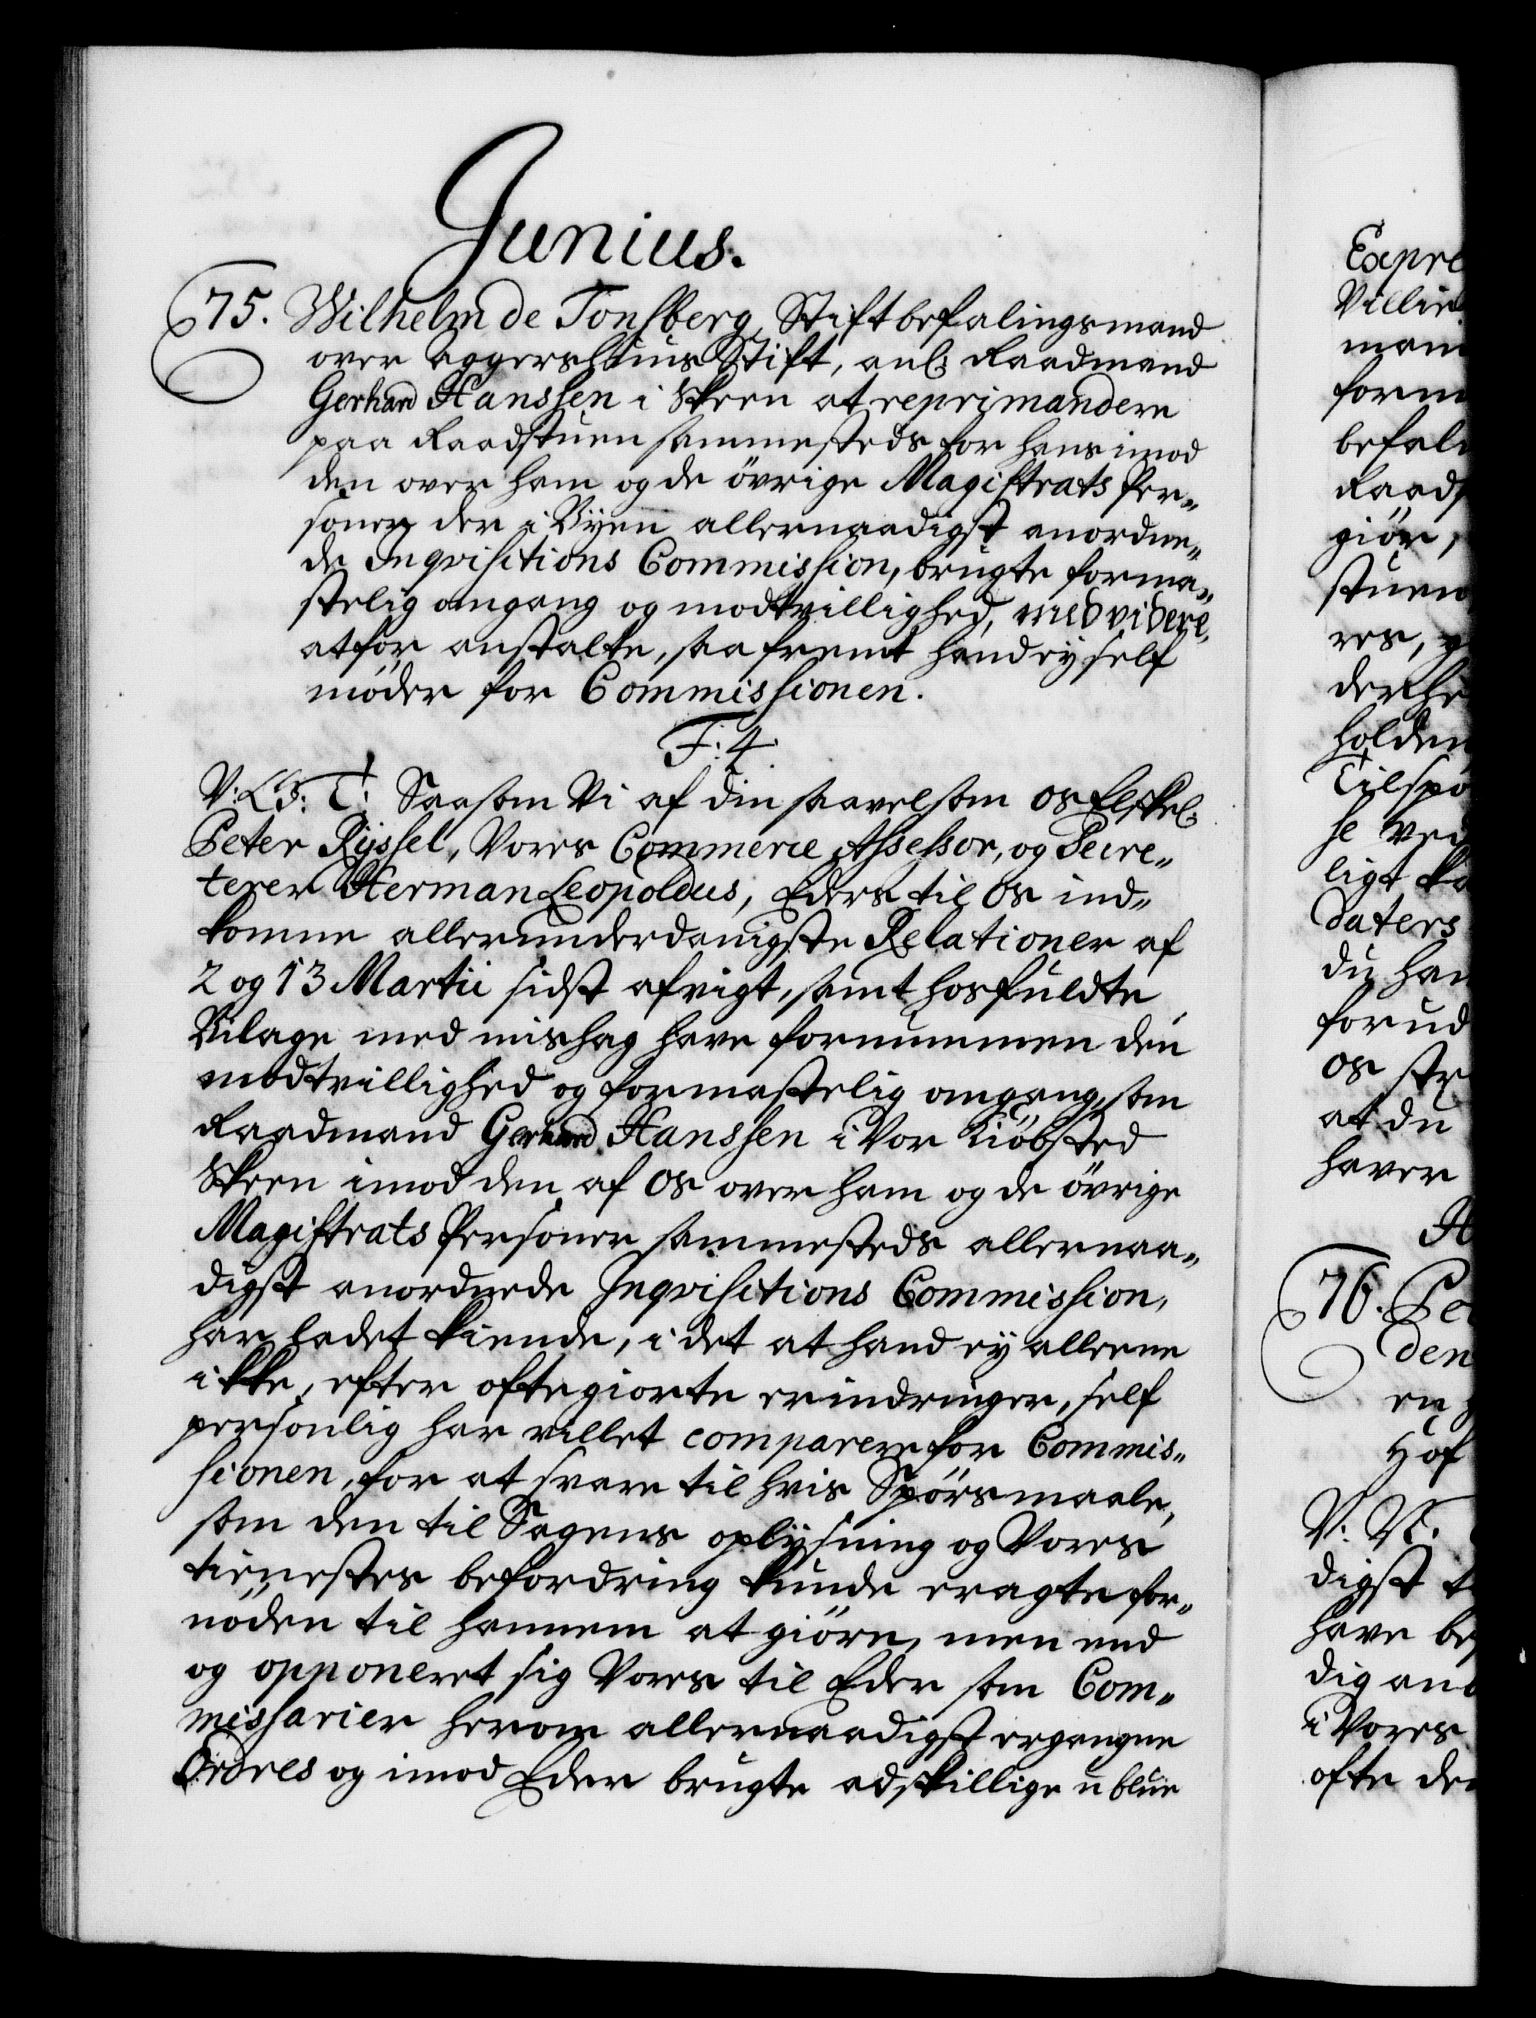 Junius.
75. Wilhelm de Tonsberg, Stiftbefalingsmand
over Aggershuus Stift, anl. Raadmand
Gerhard Hanssen i Skeen at reprimandere
paa Raadstuen sammesteds for hans imod
den over ham og de övrige Magistrats Per„
soner der i Byen allernaadigst anordne„
de Inqvisitions Commission, brugte forma„
stelig omgang og modtvillighed, med videre,
at for anstalte, saafremt hand ey self
møder for Commissionen.
F: 4.
V: G: T: Saasom Vi af din saavelsom os Elskel.
Peter Ryssel, Vores Commerce Assessor, og Secre„
terer Herman Leopoldus, Eders til Os ind„
komne allerunderdanigste Relationer af
2 og 13 Martii sidst afvigt, samt hosfuldte
Bilage med mishag have fornummen den
modtvillighed og formastelig omgang, som
Raadmand Gerhard Hanssen i Vor Kiöbsted
Skeen imod den af Os over ham og de övrige
Magistrats Personer sammesteds allernaa„
digst anordnede Inqvisitions Commission,
har ladet kiende, i det at hand ey alleene
ikke, efter ofte giorte erindringer, self
personlig har villet comparere for Commis„
sionen, for at svare til hvis Spörsmaale,
som den til Sagens oplysning og Vores
tienestes befordring kunde eragte for„
nöden til hannem at giöre, men end
og opponeret sig Vores til Eder som Com„
missarier herom allernaadigst ergangne
Ordres og imod Eder brugte adskillige u blue
Expre
Villie
mand
form
befal
Raads
giör,
stuen
res,
der
holden
Tilspö
se ved
ligt
daters
du ham
forud
os
at du
haver
76. Pe
den
en
Hof
V: V:
digst
have
dig an
i Vores
ofte de